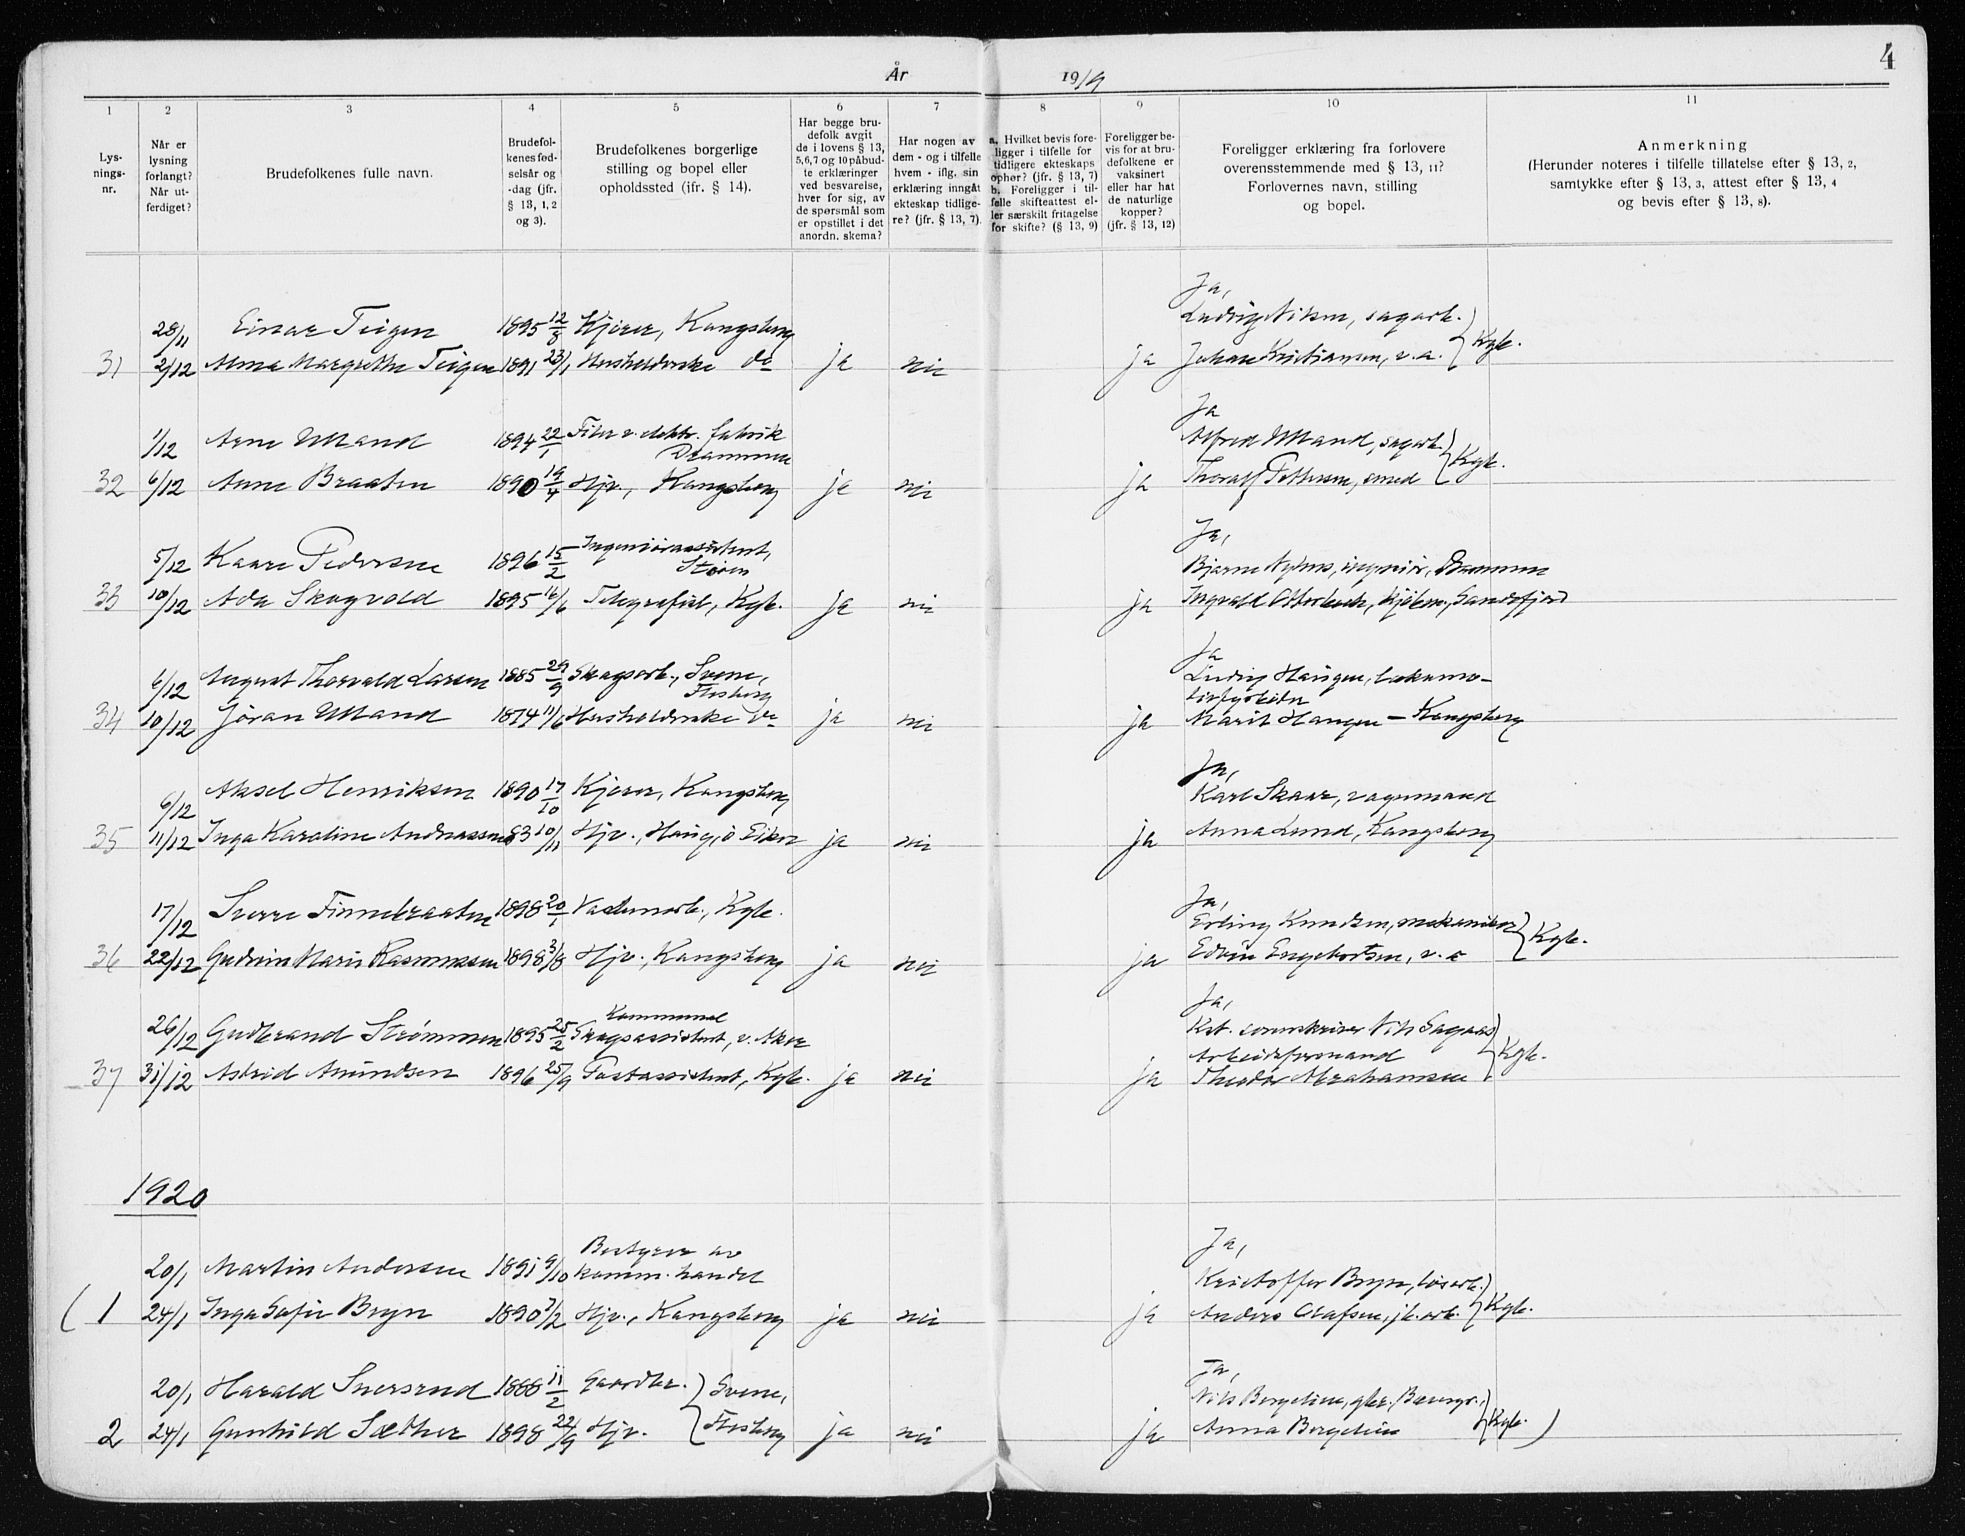 4
År 1919
1 2 3 4 5 6 7 8 9 10 11
Lys-
nings-
nr.
Når er
lysning
forlangt?
Når ut-
ferdiget?
Brudefolkenes fulle navn.
Brudefol-
kenes fød-
selsår og
-dag (jfr.
§ 13, 1, 2
og 3).
Brudefolkenes borgerlige
stilling og bopel eller
opholdssted (jfr. § 14).
Har begge bru-
defolk avgit
de i lovens § 13,
5,6,7 og 10 påbud-
te erklæringer
ved besvarelse,
hver for sig, av
de spørsmål som
er opstillet i det
anordn. skema?
Har nogen av
dem - og i tilfelle
hvem - iflg. sin
erklæring inngått
ekteskap tidlige-
re? (jfr. § 13, 7).
a. Hvilket bevis fore-
ligger i tilfelle for
tidligere ekteskaps
ophør? (jfr. § 13, 7)
b. Foreligger i til-
felle skifteattest el-
ler særskilt fritagelse
for skifte? (§ 13, 9)
Foreligger be-
vis for at bru-
defolkene er
vaksinert
eller har hat
de naturlige
kopper?
(jfr. § 13, 12)
Foreligger erklæring fra forlovere
overensstemmende med § 13, 11?
Forlovernes navn, stilling
og bopel.
Anmerkning
(Herunder noteres i tilfelle tillatelse efter § 13, 2,
samtykke efter § 13, 3, attest efter § 13, 4
og bevis efter § 13, 8).
Ja,
28/11 Einar Teigen 1895 12/8 Kjører, Kongsberg Ludvig Nilsen, sagarb.
31 2/12 Anna Margrethe Teigen 1891 23/1 Husholderske do ja nei ja Johan Kristiansen, v.a. Kgb.
Ja
1/12 Arne Ulland 1894 22/1 Filer v. elektr. fabrik Alfred Ulland, sagarb.
Drammen
32 6/12 Anne Braaten 1890 19/4 Hjv., Kongsberg ja nei ja Thoralf Pettersen, smed Kgb.
Ja,
5/12 Kaare Pedersen 1896 15/2 Ingeniørassistent, Bjarne ingeniør, Drammen
Støren
33 10/12 Ada Skogvold 1895 16/6 Telegrafist, Kgb. ja nei ja Ingvald Sandefjord
Ja
6/12 August Thorvald Larsen 1885 29/9 Skogsarb., Svene, Ludvig Haugen, lokomo-
Flesberg tivfyrbøter
34 10/12 Jøran Ulland 1874 11/6 Husholderske do ja nei ja Marit Haugen - Kongsberg
Ja,
6/12 Aksel Henriksen 1890 17/10 Kjører, Kongsberg Karl Skaar, vognmand
35 11/12 Inga Karoline Andreassen 83 10/11 Hjv., Haug, ø Eiker ja nei ja Anna Lund, Kongsberg
Ja,
17/12 Sverre Finnebraaten 1898 20/1 Kgb. Erling Knudsen, mekaniker
36 22/12 Gudrun Marie Rasmussen 1898 3/8 Hjv., Kongsberg ja nei ja Edvin Engebretsen, v.a Kgb.
Ja,
Kommunal
26/12 Gudbrand Strømmen 1895 25/2 Skogsassistent, v. Aker Kst. sorenskriver Nils Sagaas
Arbeidsformand
37 31/12 Astrid Amundsen 1896 25/9 Postassistent, Kgb. ja nei ja Theodor Abrahamsen Kgb.
1920
Ja,
Bestyrer av
20/1 Martin Andersen 1891 9/10 komm. handel Kristoffer Bryn, løsarb.
( 1 24/1 Inga Sofie Bryn 1890 7/2 Hjv., Kongsberg ja nei ja Anders Olafsen, jb. arb. Kgb.
Ja,
20/1 Harald Sversrud 1888 11/2 Gaardbr. Svene, Nils Bergelien, gbr.
2 24/1 Gunhild Sæther 1898 22/9 Hjv. Flesberg ja nei ja Anna Bergelien Kgb. )